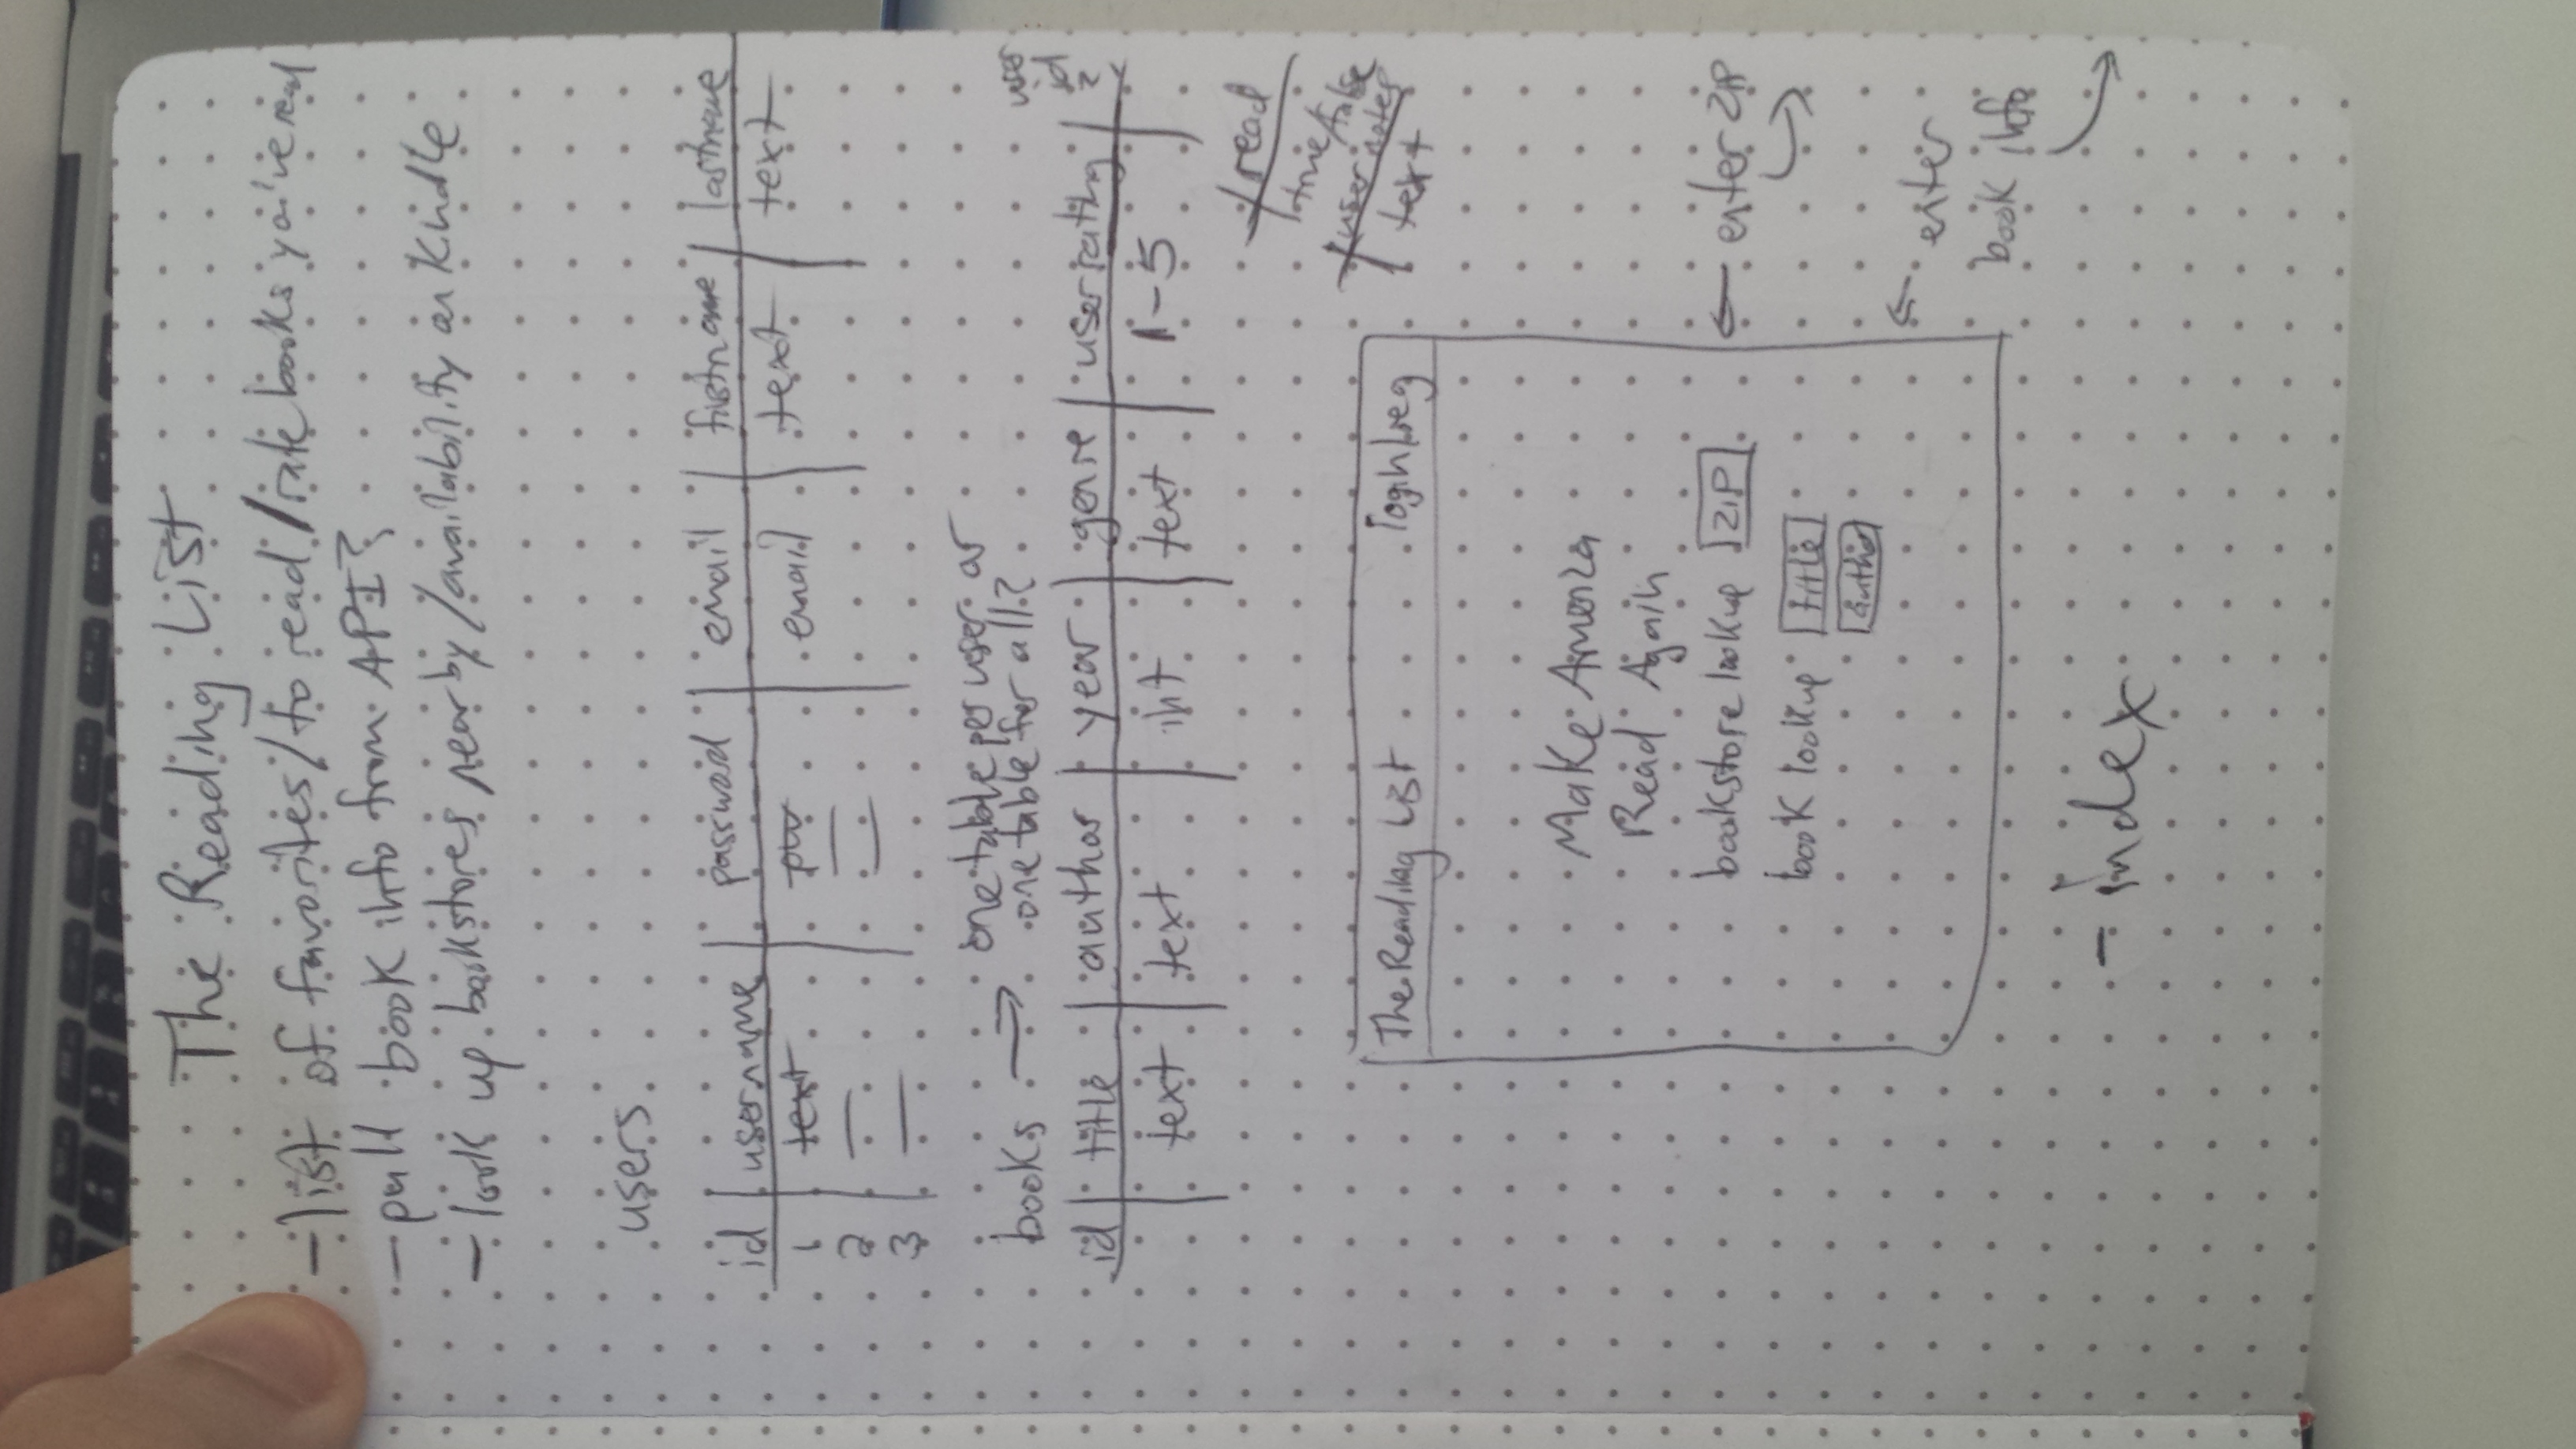 The Reading List
- list of favorites/to read/rate books you've read
- pull book info from API?
- look up bookstores nearby/availability on Kindle
users
id | username | password | email | firstname | lastname
1 text pw email text text
2
3
books → one table per user or
one table for all?
id | title | author | year | genre | user rating | user id?
text text int text 1-5
read
true/false
user notes
text
The Reading List login/reg
Make America
Read Again
bookstore lookup ZIP ← enter ZIP
book lookup title
author
← enter
book info
- index